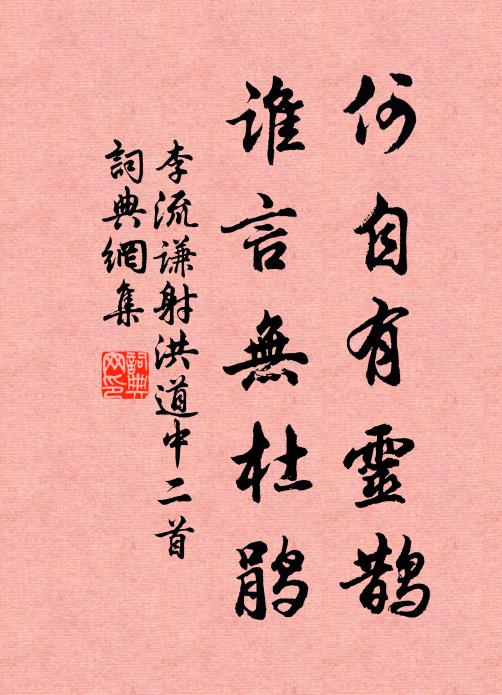 何自有靈鵲
誰言無杜鵑
李流謙射洪道中二首
詞典網集
詞典网印